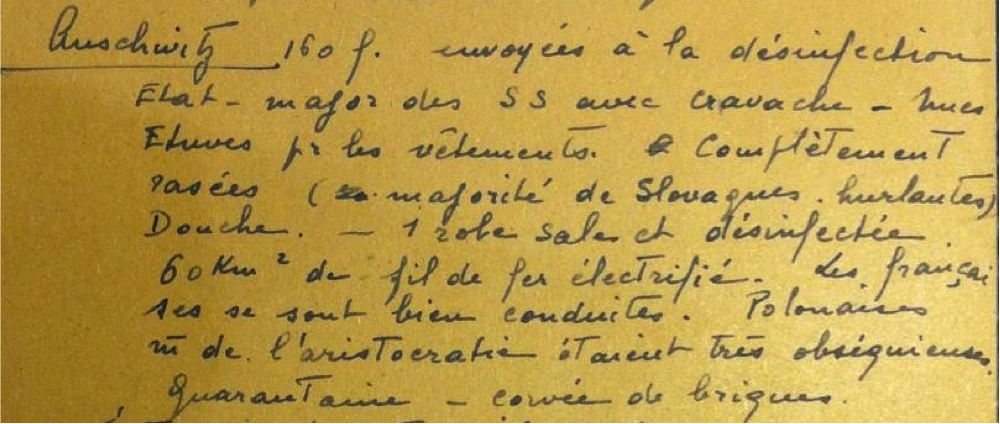 Auschwitz 160 f. envoyées à la désinfection
Etat-major des SS avec cravache - nues
Etuves pr les vêtements. Complètement
rasées (majorité de Slovaques. hurlantes)
Douche. - 1 robe sale et désinfectée.
60 Km² de fil de fer électrifié. Les françai
ses se sont bien conduites. Polonaises
m̄ de l'aristocratie étaient très obséquieuses.
Quarantaine - corvée de briques.